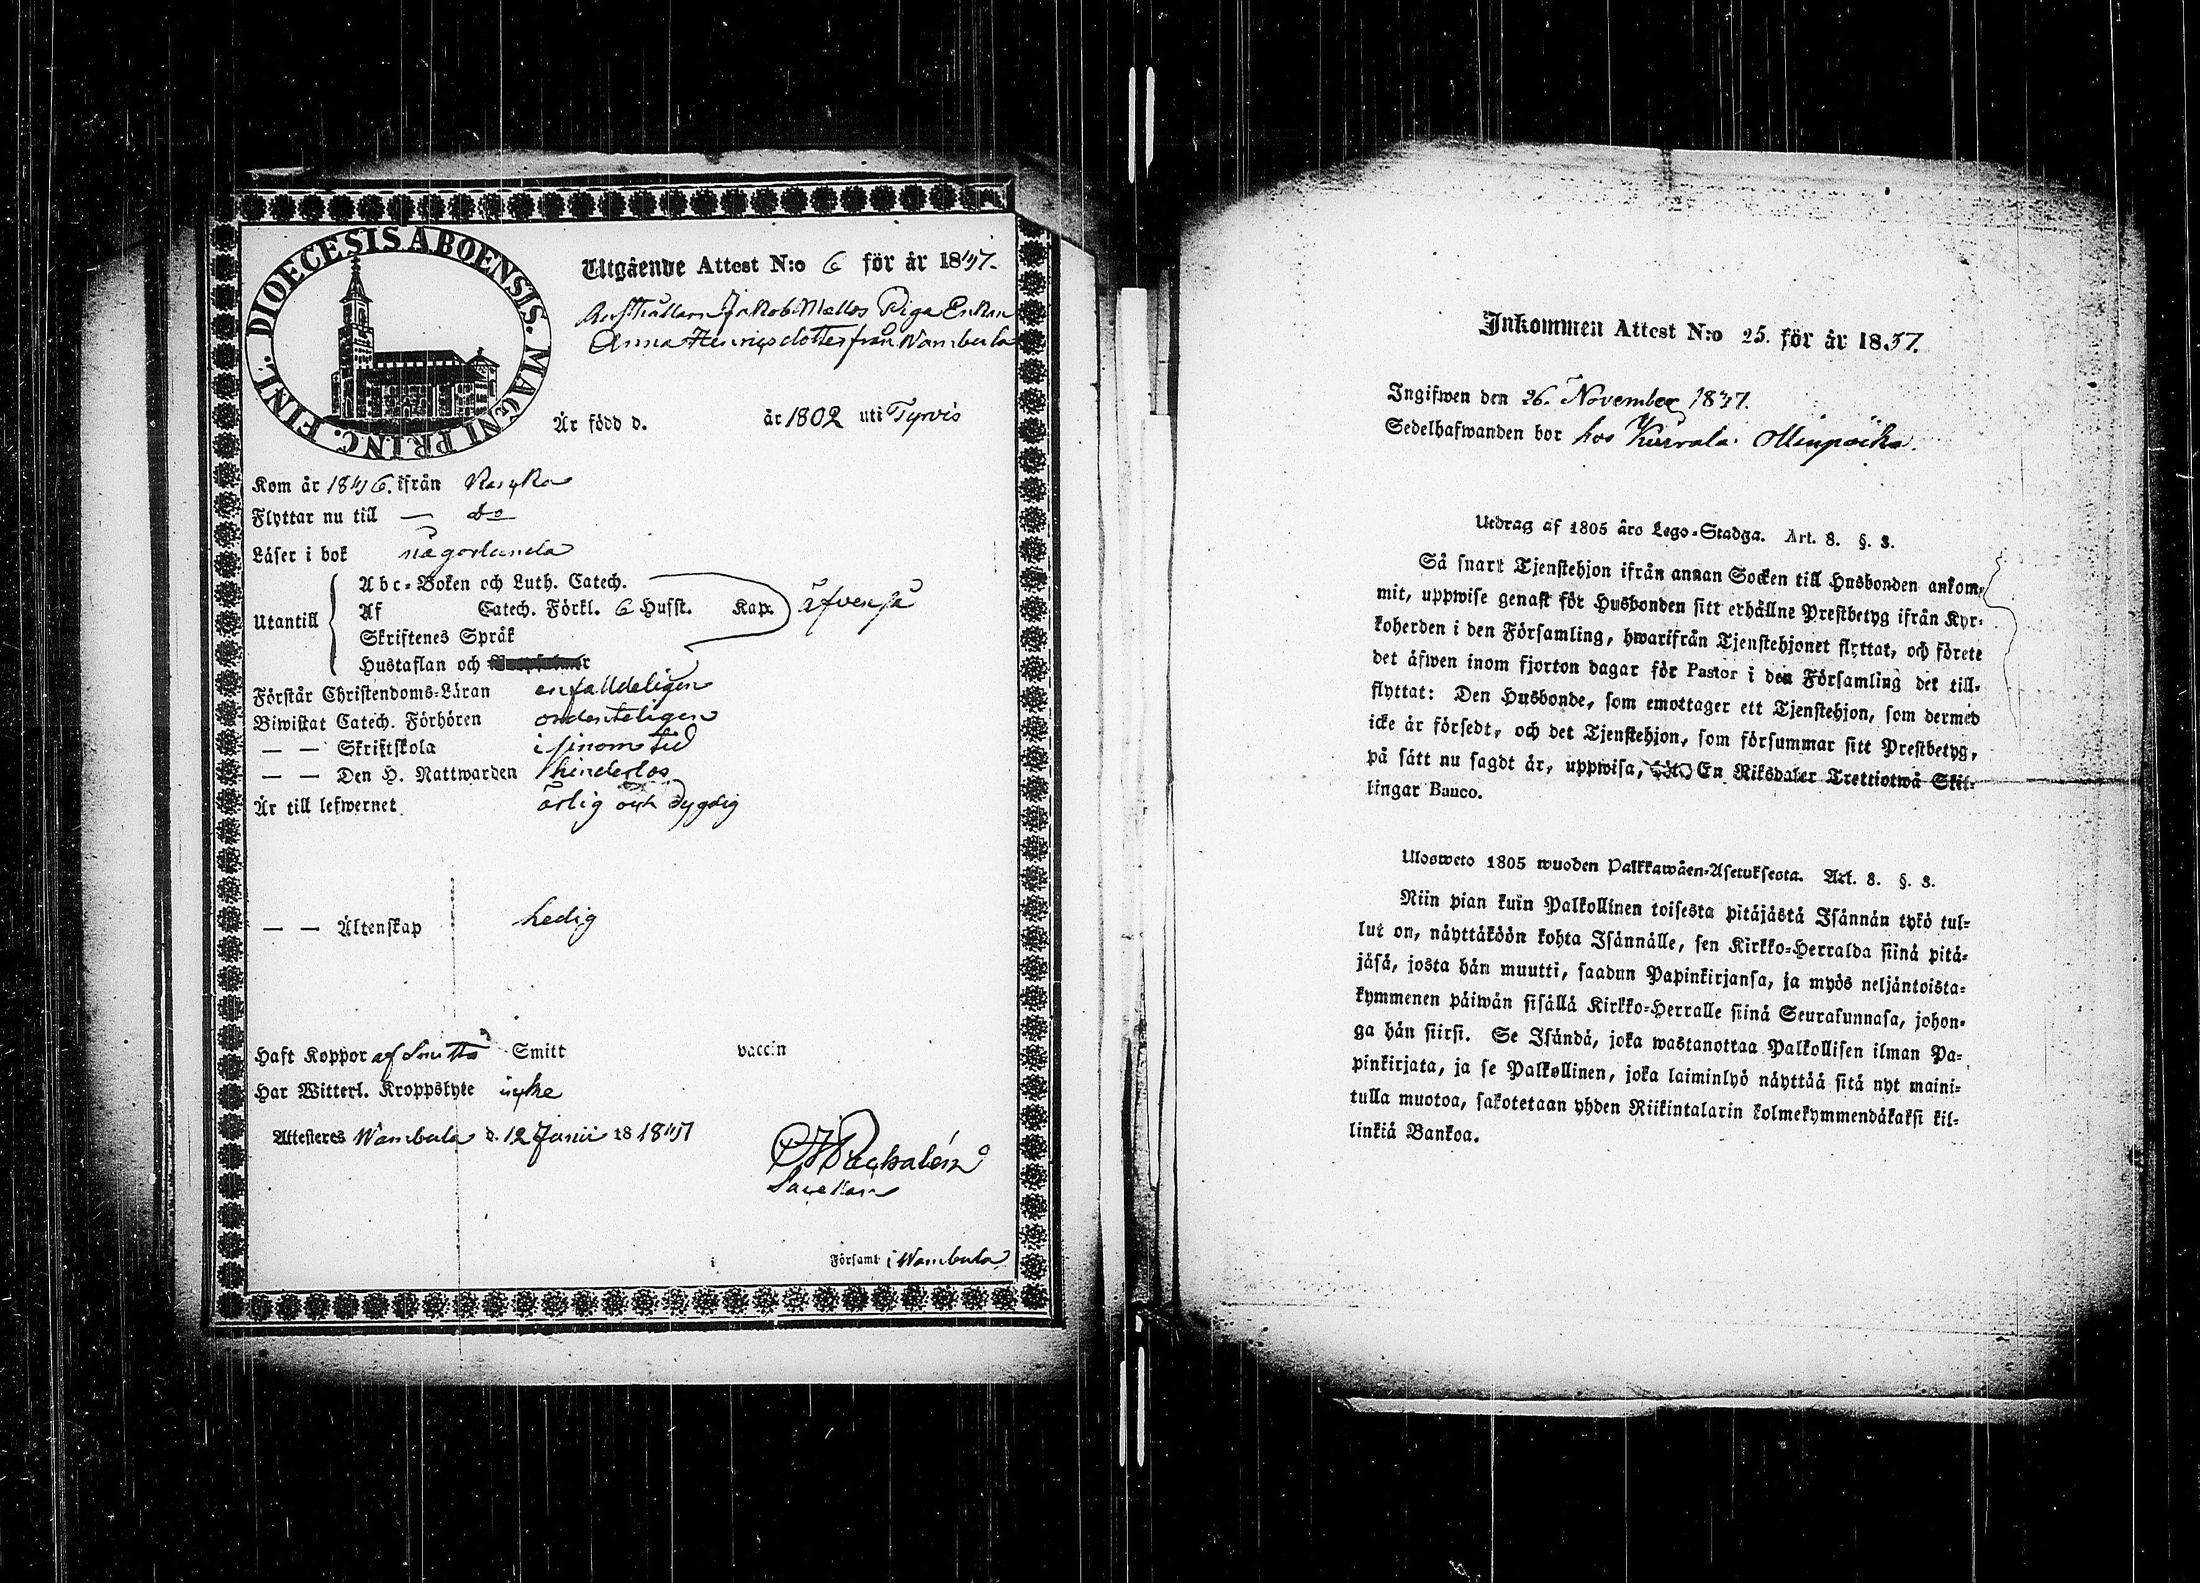 DIOECESIS ABOENSIS. MAGNI PRINC. FINL.
Utgående Attest N:o 6 för år 1847.
Jakob Mellos Piga Enkan
Anna Henricsdotter från Wambula
Är född d. år 1802 uti Tyrvis
Kom år 1846. ifrån
Flyttar nu till — do
Läser i bok någorlunda
Utantill
Abc-Boken och Luth. Catech.
Af Catech. Förkl. 6 Hufst. Kap. äfvenså
Skriftenes Språk
Hustaflan och
Förstår Christendoms-Läran enfalldeligen
Biwistat Catech. Förhören ordenteligen
— — Skriftskola i sinom tid
— — Den H. Nattwarden hinderlös
Är till lefwernet ärlig och dygdig
— — Äktenskap ledig
Haft Koppor af Smitto Smitt vaccin
Har Witterl. Kroppslyte icke
Attesteres Wambula d. 12 Junii 18 1847
Församl. i Wambula
Inkommen Attest N:o 25. för år 1847.
Ingifwen den 26. November 1847.
Sedelhafwanden bor hos Kurvala
Utdrag af 1805 års Lego-Stadga. Art. 8. §. 3.
Så snart Tjenstehjon ifrån annan Socken till Husbonden ankom-
mit, uppwise genast för Husbonden sitt erhållne Prestbetyg ifrån Kyr-
koherden i den Församling, hwarifrån Tjenstehjonet flyttat, och förete
det äfwen inom fjorton dagar för Pastor i den Församling det till-
flyttat: Den Husbonde, som emottager ett Tjenstehjon, som dermed
icke är försedt, och det Tjenstehjon, som försummar sitt Prestbetyg,
på sätt nu sagdt är, uppwisa, En Riksdaler Trettiotwå Skil-
lingar Banco.
Ulosweto 1805 wuoden Palkkawäen-Asetuksesta. Art. 8. §. 3.
Niin pian kuin Palkollinen toisesta pitäjästä Isännän tykö tul-
lut on, näyttäköön kohta Isännälle, sen Kirkko-Herralda siinä pitä-
jäsä, josta hän muutti, saadun Papinkirjansa, ja myös neljäntoista-
kymmenen päiwän sisällä Kirkko-Herralle siinä Seurakunnasa, johon-
ga hän siirsi. Se Isändä, joka wastanottaa Palkollisen ilman Pa-
pinkirjata, ja se Palkollinen, joka laiminlyö näyttää sitä nyt maini-
tulla muotoa, sakotetaan yhden Riikintalarin kolmekymmendäkaksi kil-
linkiä Bankoa.